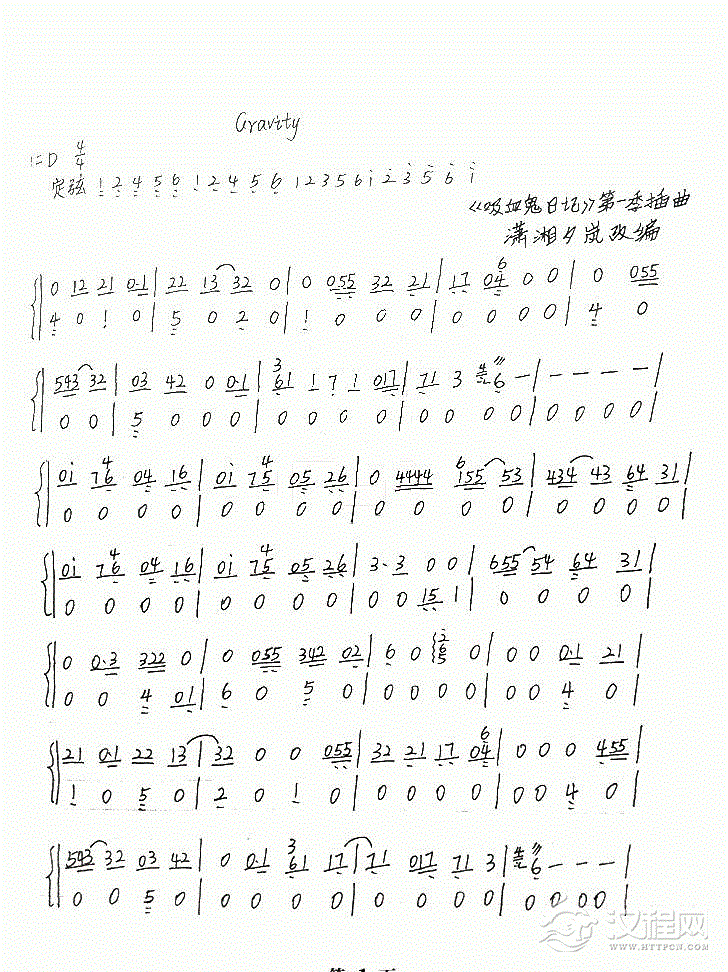 Gravity
1=D 4/4
定弦 1 2 4 5 6 1 2 4 5 6 1 2 3 5 6 i 2 3 5 6 i
《吸血鬼日记》第一季插曲
潇湘夕岚改编
0 12 21 0·1 | 22 13 32 0 | 0 055 32 21 | 17 04 6 0 0 | 0 055
4 0 1 0 | 5 0 2 0 | 1 0 0 0 | 0 0 0 0 | 4 0
543 32 | 03 42 0 0·1 | 3 61 1 7 1 017 | 71 3 6 — | — — — — |
0 0 | 5 0 0 0 | 0 0 0 0 | 0 0 0 0 | 0 0 0 0 |
0i 7 4 6 04 16 | 0i 7 4 5 05 26 | 0 4444 6 i55 53 | 434 43 64 31 |
0 0 0 0 | 0 0 0 0 | 0 0 0 0 | 0 0 0 0
0i 7 4 6 04 16 | 0i 7 4 5 05 26 | 3·3 0 0 | 655 54 64 31 |
0 0 0 0 | 0 0 0 0 | 0 0 15 1 | 0 0 0 0
0 0·3 322 0 | 0 055 342 02 | 6 0 0 | 0 0 0·1 21 |
0 0 4 01 | 6 0 5 0 | 0 0 0 0 | 0 0 4 0
21 0·1 22 13 | 32 0 0 055 | 32 21 17 04 6 | 0 0 0 455 |
1 0 5 0 | 2 0 1 0 | 0 0 0 0 | 0 0 4 0
543 32 03 42 | 0 0·1 3 61 17 | 71 017 71 3 | 6 — — — |
0 0 5 0 | 0 0 0 0 | 0 0 0 0 | 0 0 0 0 |
汉程网
WWW.HTTPCN.COM